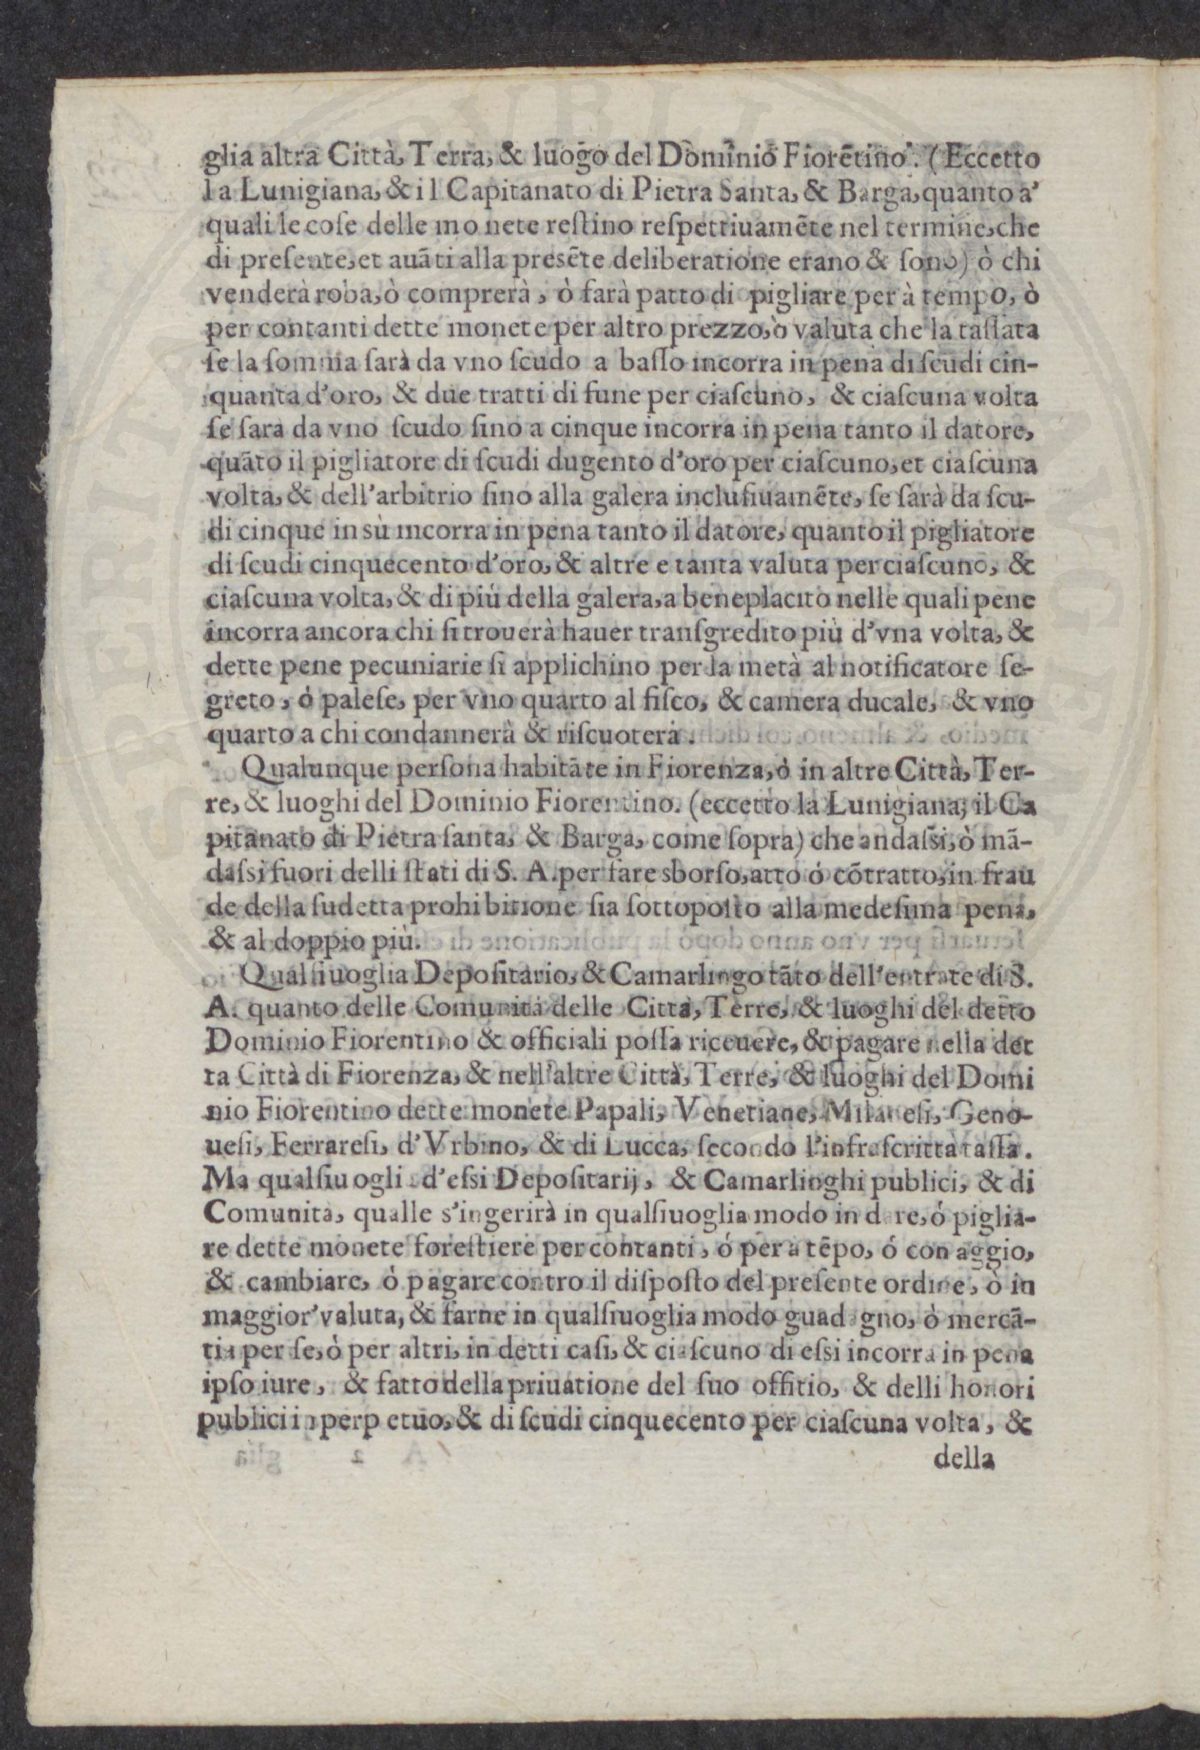 glia altra Città, Terra, & luogo del Dominio Fiorẽtino. (Eccetto
la Lunigiana, & il Capitanato di Pietra Santa, & Barga, quanto a'
quali le cose delle monete restino respettiuamẽte nel termine, che
di presente, et auãti alla presẽte deliberatione erano & sono) ò chi
venderà roba, ò comprerà, ò farà patto di pigliare per à tempo, ò
per contanti dette monete per altro prezzo, ò valuta che la tassata
se la somma sarà da vno scudo a basso incorra in pena di scudi cin-
quanta d'oro, & due tratti di fune per ciascuno, & ciascuna volta
se sara da vno scudo sino a cinque incorra in pena tanto il datore,
quãto il pigliatore di scudi dugento d'oro per ciascuno, et ciascuna
volta, & dell'arbitrio sino alla galera inclusiuamẽte, se sarà da scu-
di cinque in sù incorra in pena tanto il datore, quanto il pigliatore
di scudi cinquecento d'oro, & altre e tanta valuta per ciascuno, &
ciascuna volta, & di più della galera, a beneplacito nelle quali pene
incorra ancora chi si trouerà hauer transgredito più d'vna volta, &
dette pene pecuniarie si applichino per la metà al notificatore se-
greto, ó palese, per vno quarto al fisco, & camera ducale, & vno
quarto a chi condannerà & riscuoterà.
Qualunque persona habitãte in Fiorenza, ò in altre Città, Ter-
re, & luoghi del Dominio Fiorentino. (eccetto la Lunigiana, il Ca
pitanato di Pietra santa, & Barga, come sopra) che andassi, ò mã-
dassi fuori delli stati di S. A. per fare sborso, atto ó cõtratto, in frau
de della sudetta prohibitione sia sottoposto alla medesima pena,
& al doppio più.
Qualsiuoglia Depositario, & Camarlingo tãto dell'entrate di S.
A. quanto delle Comunità delle Città, Terre, & luoghi del detto
Dominio Fiorentino & officiali possa riceuere, & pagare nella det
ta Città di Fiorenza, & nell'altre Città, Terre, & luoghi del Domi
nio Fiorentino dette monete Papali, Venetiane, Milanesi, Geno-
uesi, Ferraresi, d'Vrbino, & di Lucca, secondo l'infrascritta tassa.
Ma qualsiuogli d'essi Depositarij, & Camarlinghi publici, & di
Comunità, qualle s'ingerirà in qualsiuoglia modo in dare, ó piglia-
re dette monete forestiere per contanti, ó per a tẽpo, ó con aggio,
& cambiare, ò pagare contro il disposto del presente ordine, ò in
maggior' valuta, & farne in qualsiuoglia modo guadagno, ò mercã-
tia per se, ò per altri, in detti casi, & ciascuno di essi incorra in pena
ipso iure, & fatto della priuatione del suo offitio, & delli honori
publici in perpetuo, & di scudi cinquecento per ciascuna volta, &
della